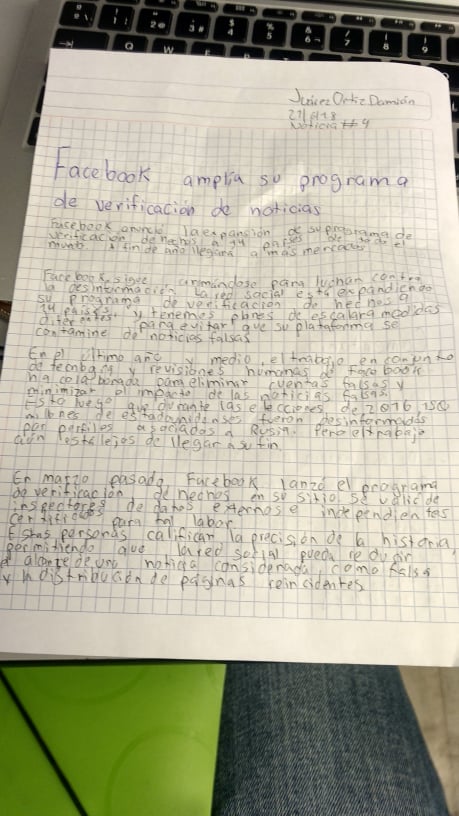 Q W
Juárez Ortiz Damián
21/6/18
Noticia #9
Facebook amplía su programa
de verificación de noticias
Facebook anunció la expansión de su programa de
verificación de hechos a 14 países de todo el
mundo. A fin de año llegará a más mercados
Facebook sigue armándose para luchar contra
la desinformación. La red social está expandiendo
su programa de verificación de hechos a
14 países y tenemos planes de escalar a medidas
diferentes para evitar que su plataforma se
contamine de noticias falsas
En el último año y medio, el trabajo en conjunto
de tecnología y revisiones humanas de Facebook
ha colaborado para eliminar cuentas falsas y
minimizar el impacto de las noticias falsas.
Esto luego que durante las elecciones de 2016, 150
millones de estadounidenses fueron desinformados
por perfiles asociados a Rusia. Pero el trabajo
aún está lejos de llegar a su fin.
En marzo pasado, Facebook lanzó el programa
de verificación de hechos en su sitio. Se valió de
inspectores de datos externos e independientes
certificados para tal labor.
Estas personas califican la precisión de la historia,
permitiendo que la red social pueda reducir
el alcance de una noticia considerada como falsa
y la distribución de páginas reincidentes